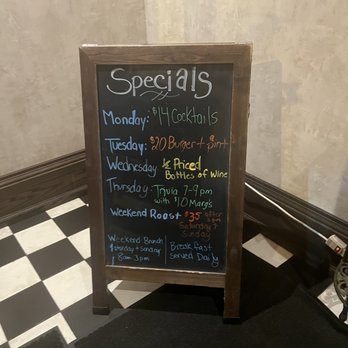 Specials
Monday: $14 Cocktails
Tuesday: $20 Burger + pint
Wednesday ½ Priced
Bottles of Wine
Thursday: Tquia 7-9pm
with $10 Marg's
Weekend Roast $35 after
Saturday +
Sunday
Weekend Brunch
Saturday + Sunday
8am 3pm
Breakfast
Served Daily